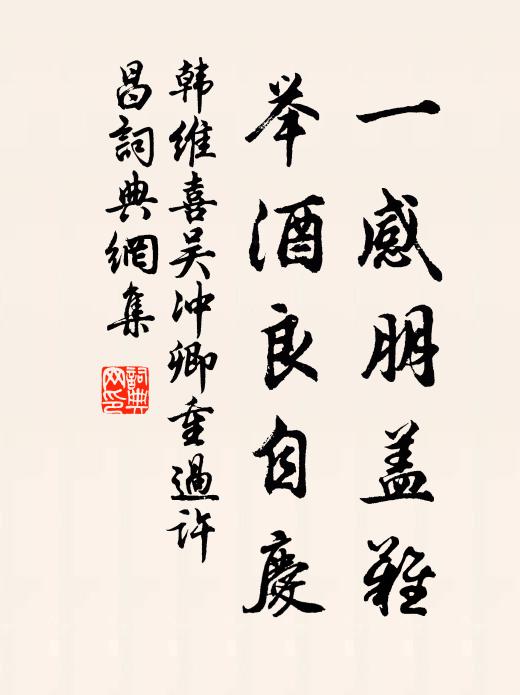 一感朋盖難
举酒良自慶
韩維喜吴冲卿重過许
昌詞典網集
詞典网印